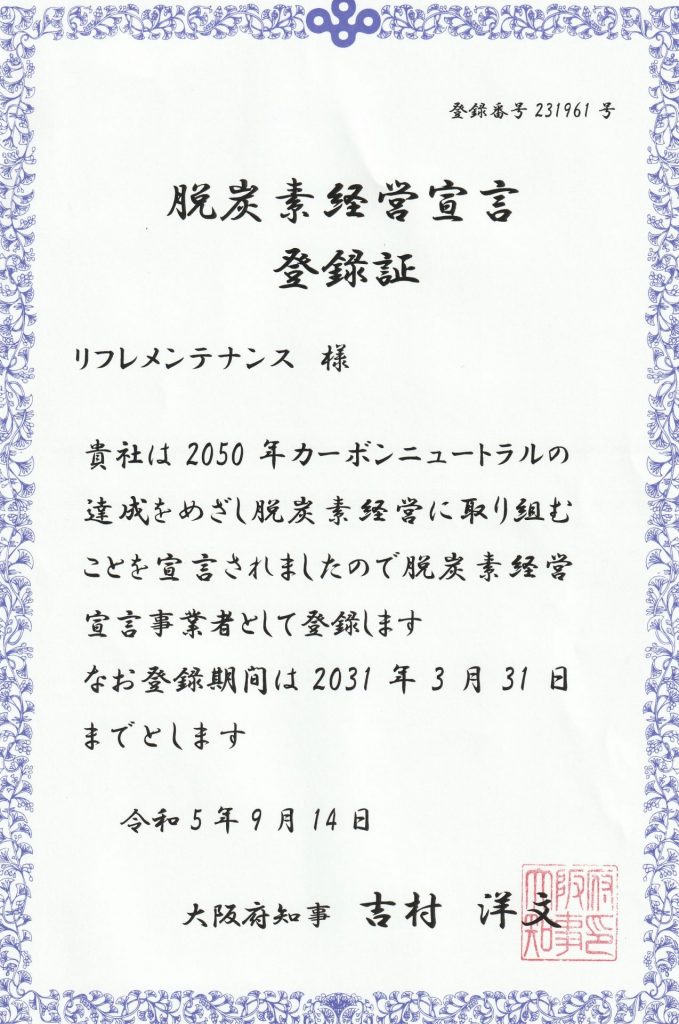 登録番号 231961 号
脱炭素経営宣言
登録証
リフレメンテナンス 様
貴社は 2050 年カーボンニュートラルの
達成をめざし脱炭素経営に取り組む
ことを宣言されましたので脱炭素経営
宣言事業者として登録します
なお登録期間は 2031 年 3 月 31 日
までとします
令和 5 年 9 月 14 日
大阪府知事 吉村 洋文
大阪府知事印